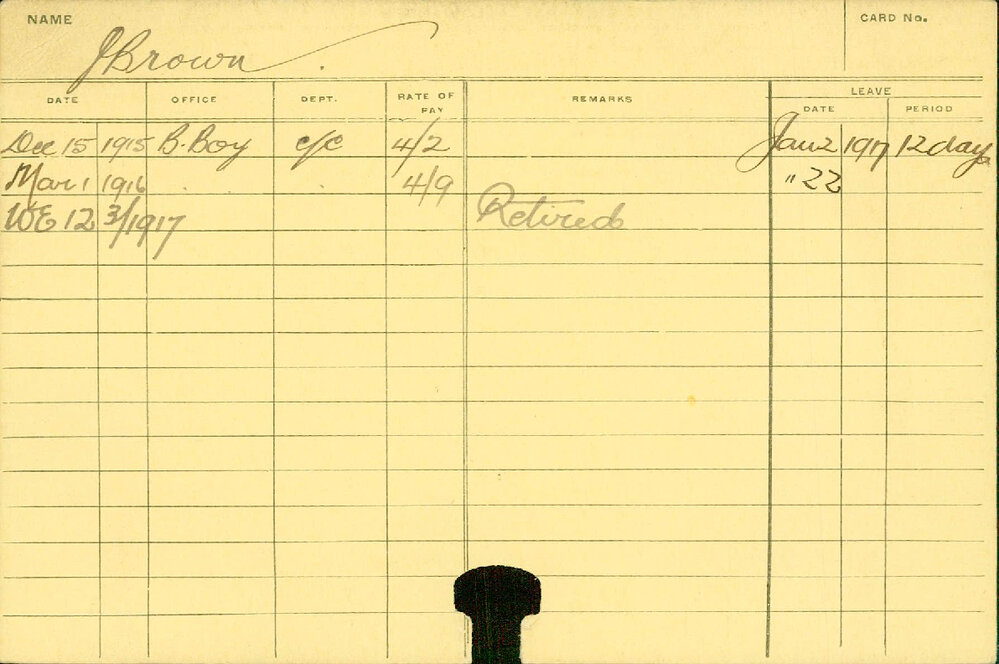 NAME
CARD No.
J Brown
DATE OFFICE DEPT. RATE OF PAY REMARKS LEAVE
DATE PERIOD
Dec 15 1915 B. Boy c/c 4/2 Jan 2 1917 12 days
Mar 1 1916 . . 4/9 " 22
WE 12 3/1917 Retired